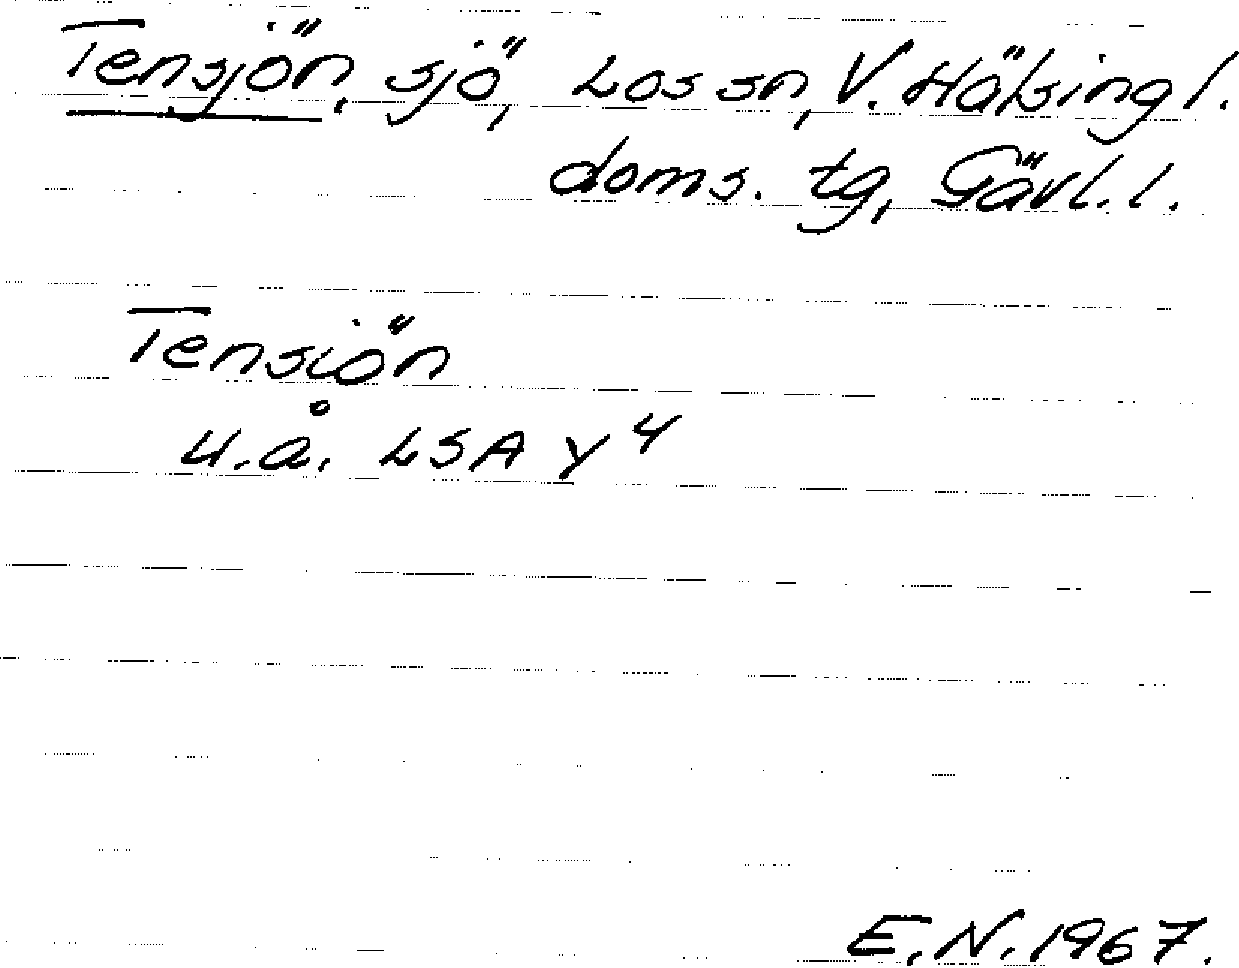 Tensjön, sjö, Los sn, V. Hälsingl.
doms. tg, Gävl. l.
Tensiön
u.å. LSA Y 4
E.N. 1967.